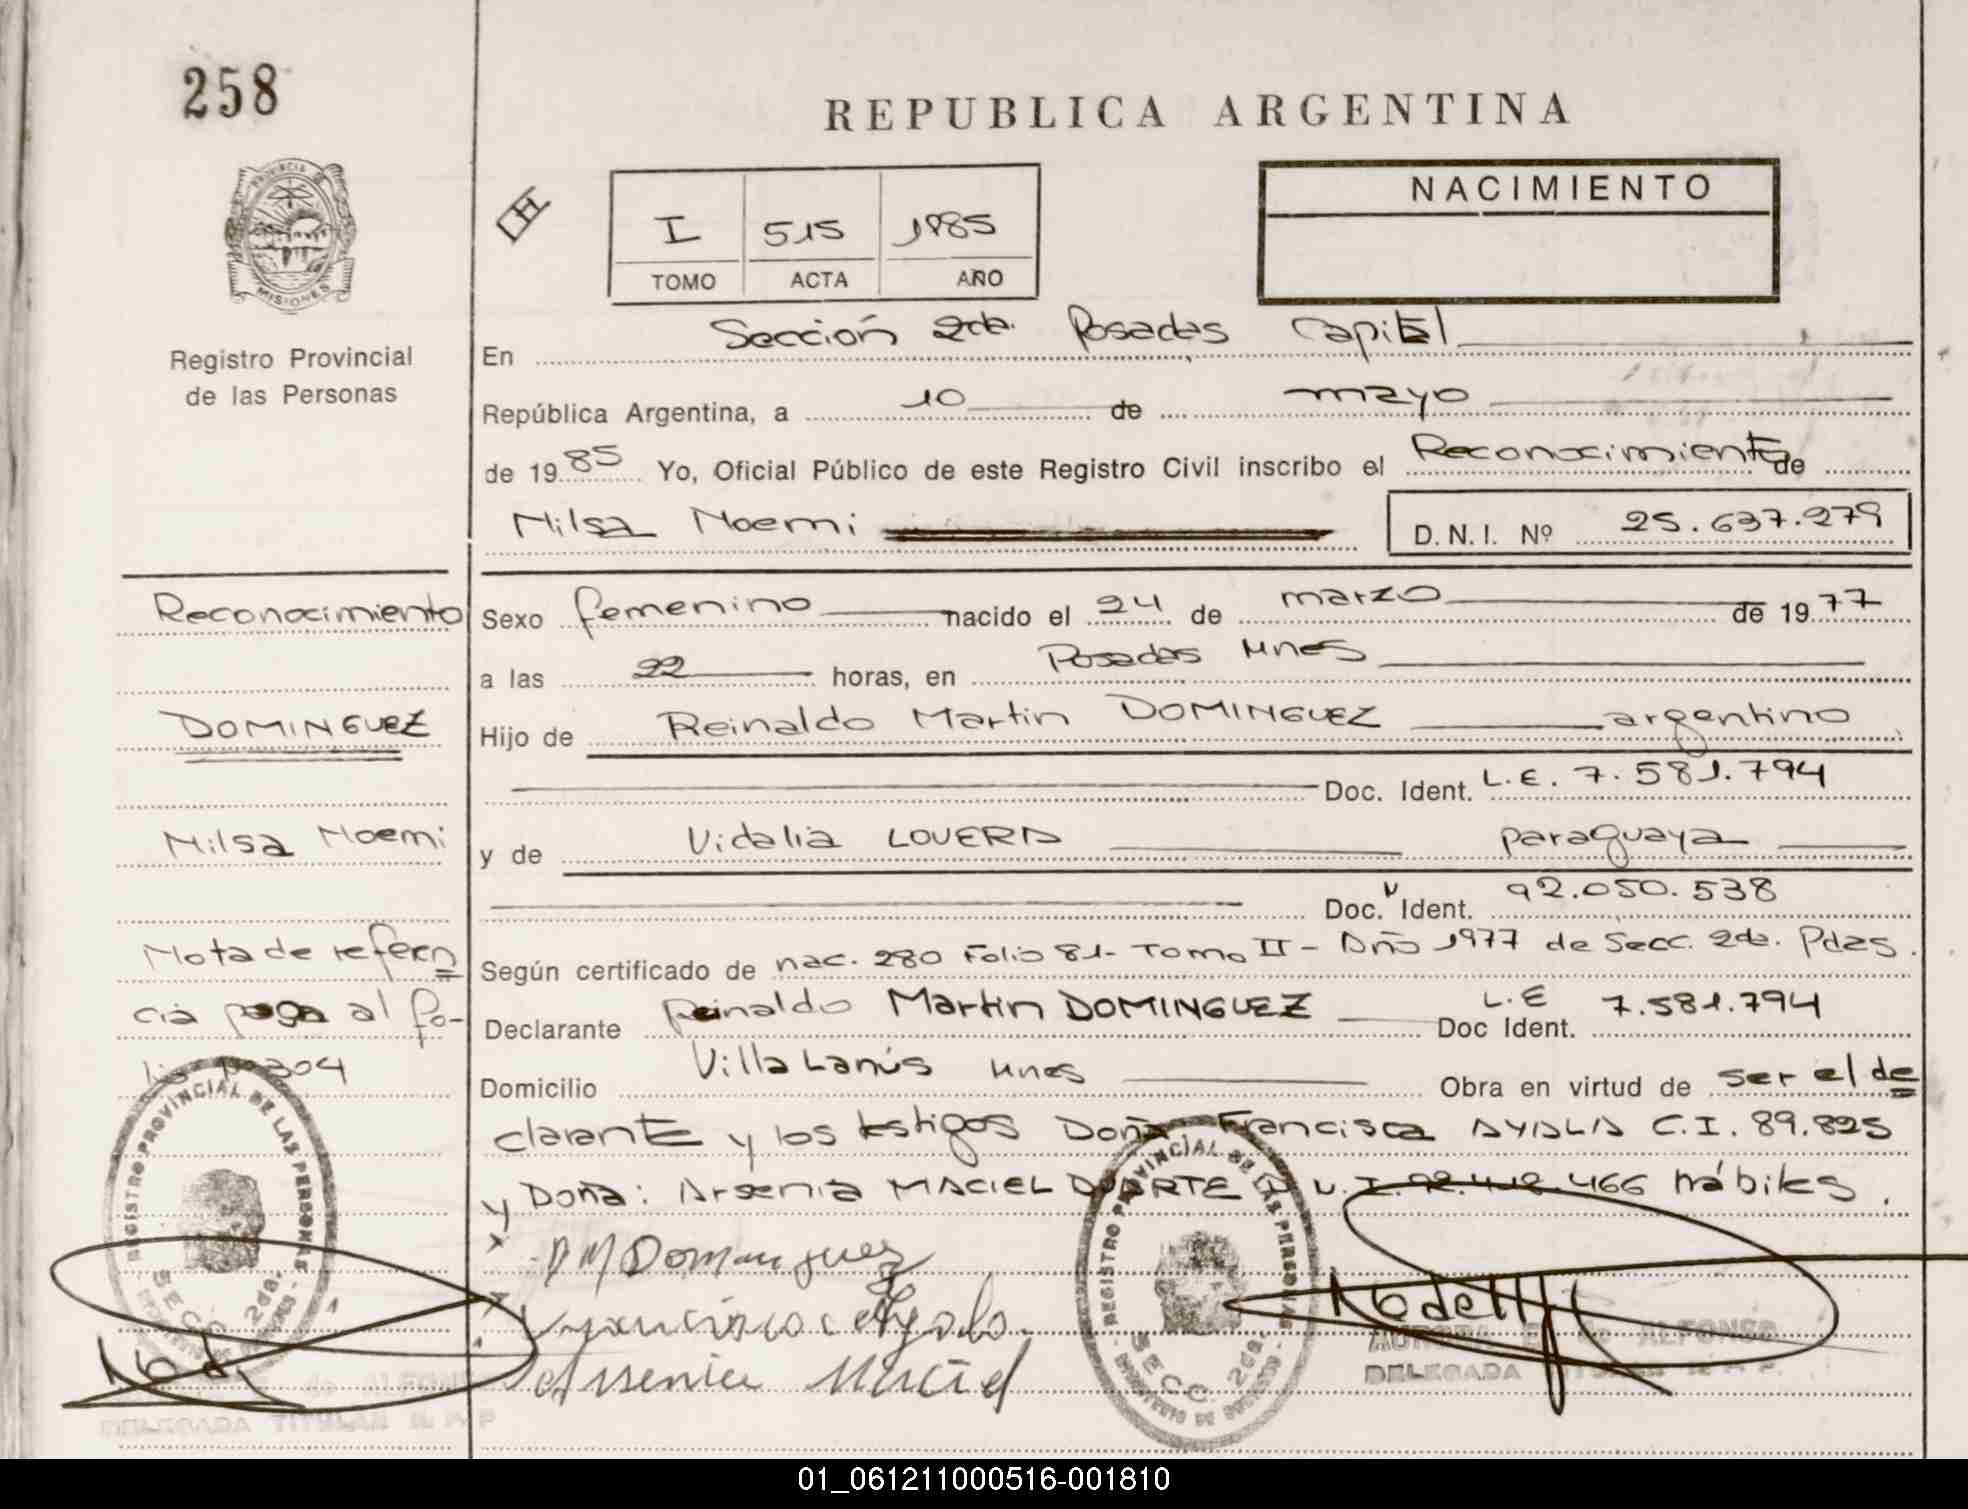 258
REPUBLICA ARGENTINA
PROVINCIA DE
MISIONES
Registro Provincial
de las Personas
H
I 515 1985
TOMO ACTA AÑO
NACIMIENTO
En Sección 2da. Posadas Capital
República Argentina, a 10 de mayo
de 1985 Yo, Oficial Público de este Registro Civil inscribo el Reconocimiento de
Nilsa Noemi
D.N.I. Nº 25.637.279
Reconocimiento
DOMINGUEZ
Nilsa Noemi
Nota de referen
cia pasa al fo-
lio nº 304
Sexo femenino nacido el 24 de marzo de 1977
a las 22 horas, en Posadas Mnes
Hijo de Reinaldo Martin DOMINGUEZ argentino
Doc. Ident. L.E. 7.581.794
y de Vidalia LOVERA paraguaya
Doc. Ident. 92.050.538
Según certificado de nac. 280 Folio 81- Tomo II - Año 1977 de Secc. 2da. Pdas.
Declarante Reinaldo Martin DOMINGUEZ L.E Doc Ident. 7.581.794
Domicilio Villa Lanús Mnes Obra en virtud de ser el de
clarante y los testigos Doña Francisca AYALA C.I. 89.825
y Doña: Arsenia MACIEL DUARTE 466 hábiles.
R M Dominguez
Francisca Ayala
Arsenia Maciel
REGISTRO PROVINCIAL DE LAS PERSONAS
SECC. 2da.
REGISTRO PROVINCIAL DE LAS PERSONAS
SECC. 2da.
AURORA E. de ALFONSO
DELEGADA TITULAR R. P. P.
de ALFONSO
DELEGADA TITULAR R P P
01_061211000516-001810